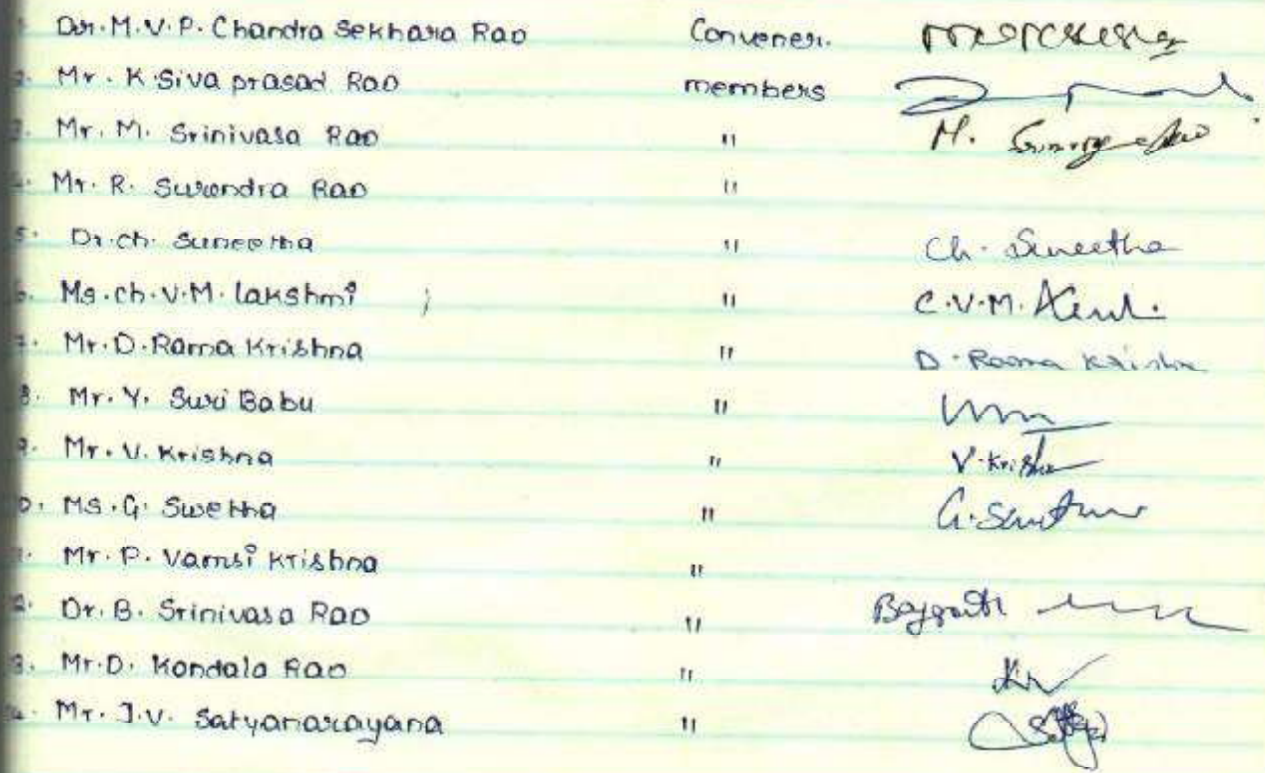 Dr. M.V.P. Chandra Sekhara Rao Convener.
2. Mr. K. Siva prasad Rao members
3. Mr. M. Srinivasa Rao " M.
4. Mr. R. Surendra Rao "
5. Dr. ch. Suneetha " Ch. Suneetha
6. Ms. ch. V.M. lakshmi " C.V.M.
7. Mr. D. Rama Krishna " D. Rama Krishna
8. Mr. Y. Suri Babu "
9. Mr. V. Krishna " V. Krishna
0. Ms. G. Swetha " G.
1. Mr. P. Vamsi Krishna "
2. Dr. B. Srinivasa Rao "
3. Mr. D. Kondala Rao "
4. Mr. J.V. Satyanarayana "